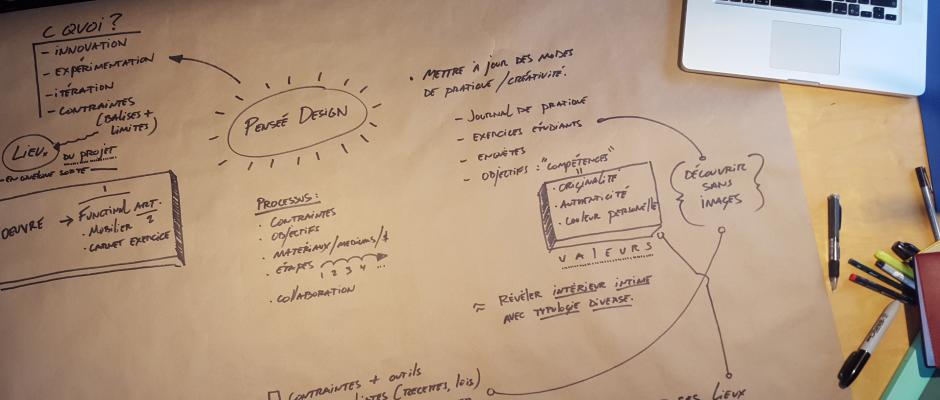 C QUOI ?
- INNOVATION
- EXPÉRIMENTATION
- ITÉRATION
- CONTRAINTES
(BALISES +
LIMITES)
LIEUX
DU PROJET
- EN QUELQUE SORTE
OEUVRE → FUNCTIONAL ART.
1
2
• MOBILIER
• CARNET EXERCICE
PENSEÉ DESIGN
PROCESSUS :
• CONTRAINTES
• OBJECTIFS
• MATÉRIAUX/MEDIUMS/$
• ÉTAPES
1 2 3 4 ...
• COLLABORATION
• METTRE À JOUR DES MODES
DE PRATIQUE / CRÉATIVITÉ.
- JOURNAL DE PRATIQUE
- EXERCICES ÉTUDIANTS
- ENQUÊTES
- OBJECTIFS : "COMPÉTENCES"
• ORIGINALITÉ
• AUTHENTICITÉ
• COULEUR PERSONELLE
VALEURS
≈ RÉVÉLER INTÉRIEUR INTIME
AVEC TYPOLOGIE DIVERSE.
{DÉCOUVRIR
SANS
IMAGES}
CONTRAINTES + OUTILS
(RECETTES, LOIS)
LIEUX